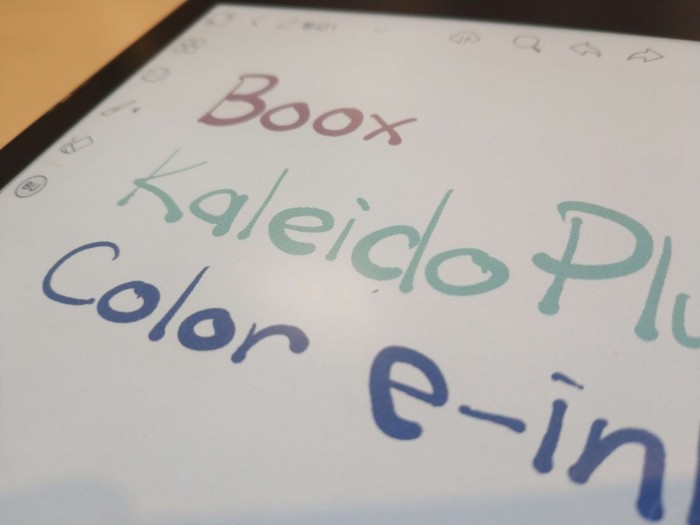 Boox
Kaleido Plu
Color e-in